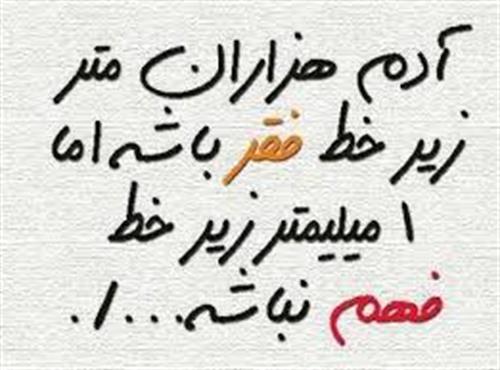 آدم هزاران متر
زیر خط فقر باشه اما
۱ میلیمتر زیر خط
فهم نباشه.../.